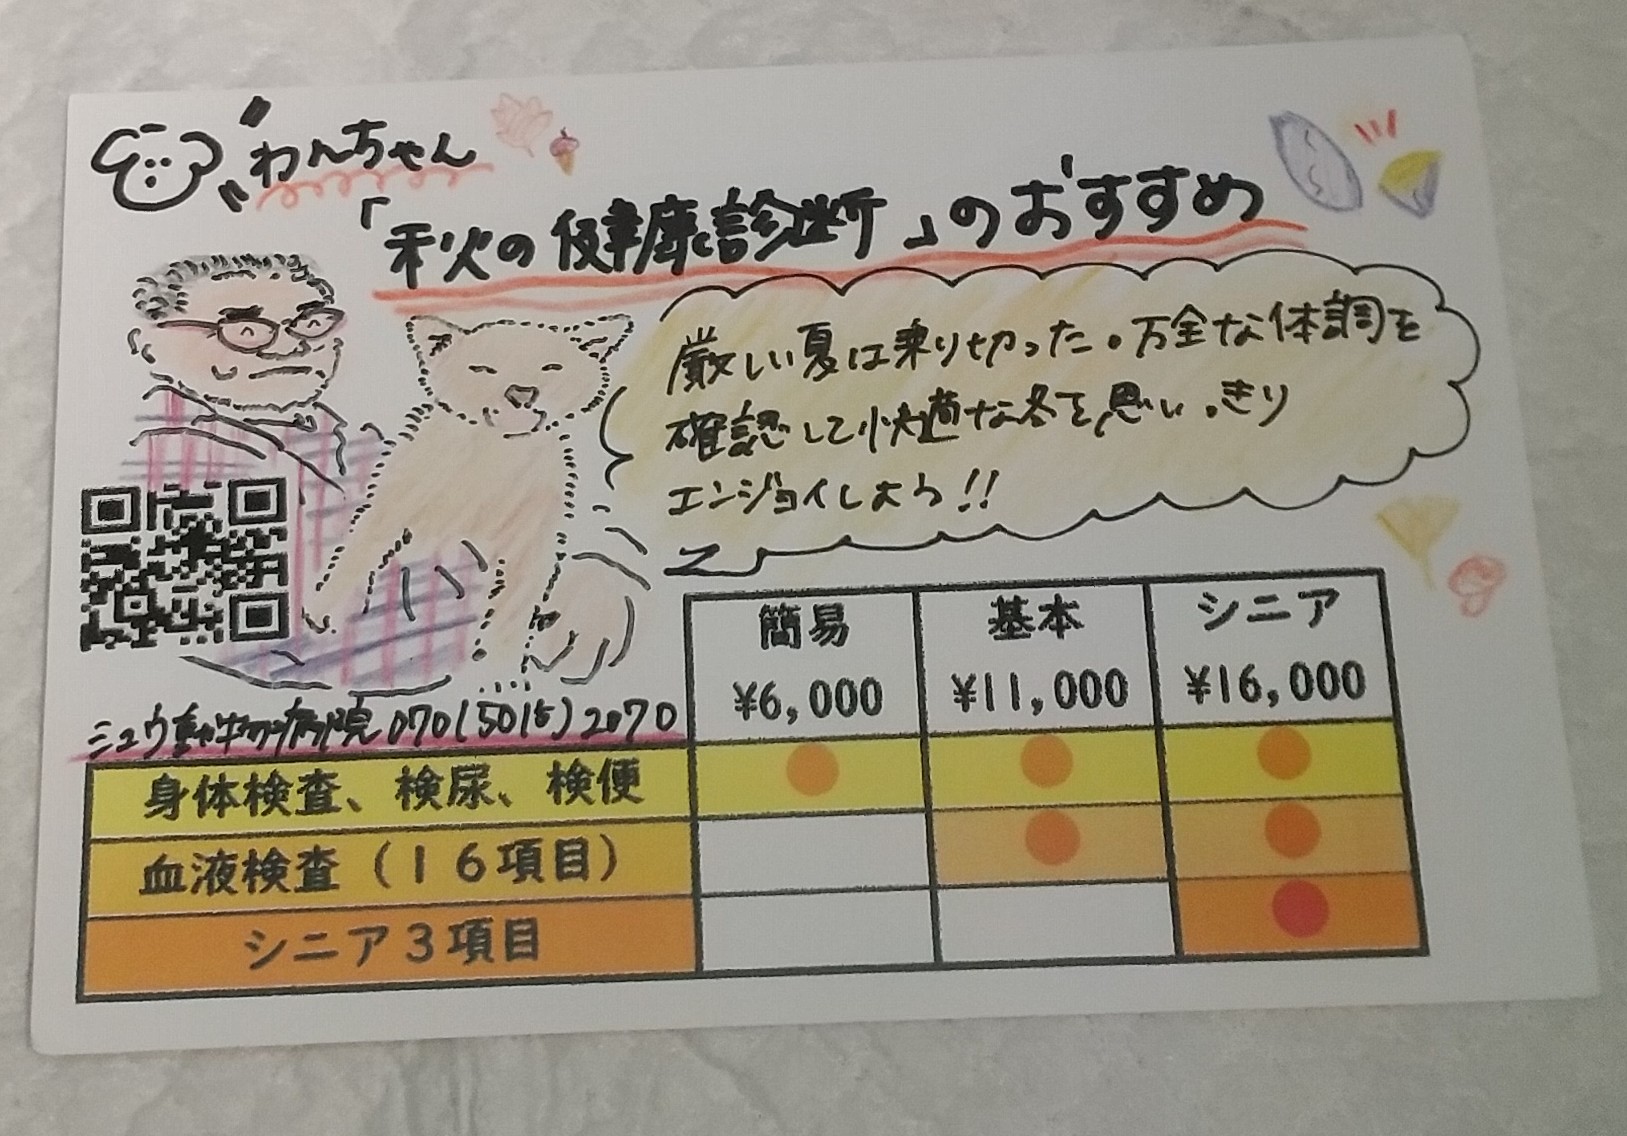 わんちゃん
「秋の健康診断」のおすすめ
厳しい夏は乗り切った。万全な体調を
確認して快適な冬を思いっきり
エンジョイしよう!!
簡易
¥6,000
基本
¥11,000
シニア
¥16,000
ミュウ動物病院 070(5015)2070
身体検査、検尿、検便
血液検査(16項目)
シニア3項目